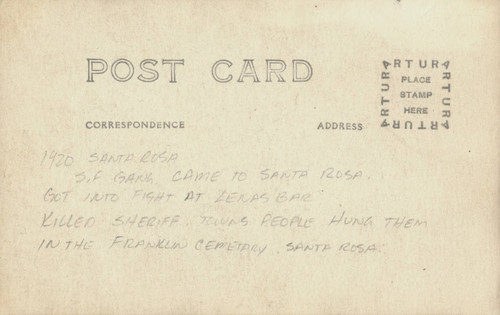 POST CARD
CORRESPONDENCE
ADDRESS
ARTURA
PLACE
STAMP
HERE
ARTURA
ARTURA
ARTURA
1920 SANTA ROSA
S.F GANG CAME TO SANTA ROSA.
GOT INTO FIGHT AT LENAS BAR
KILLED SHERIFF. TOWNS PEOPLE HUNG THEM
IN THE FRANKLIN CEMETARY. SANTA ROSA.